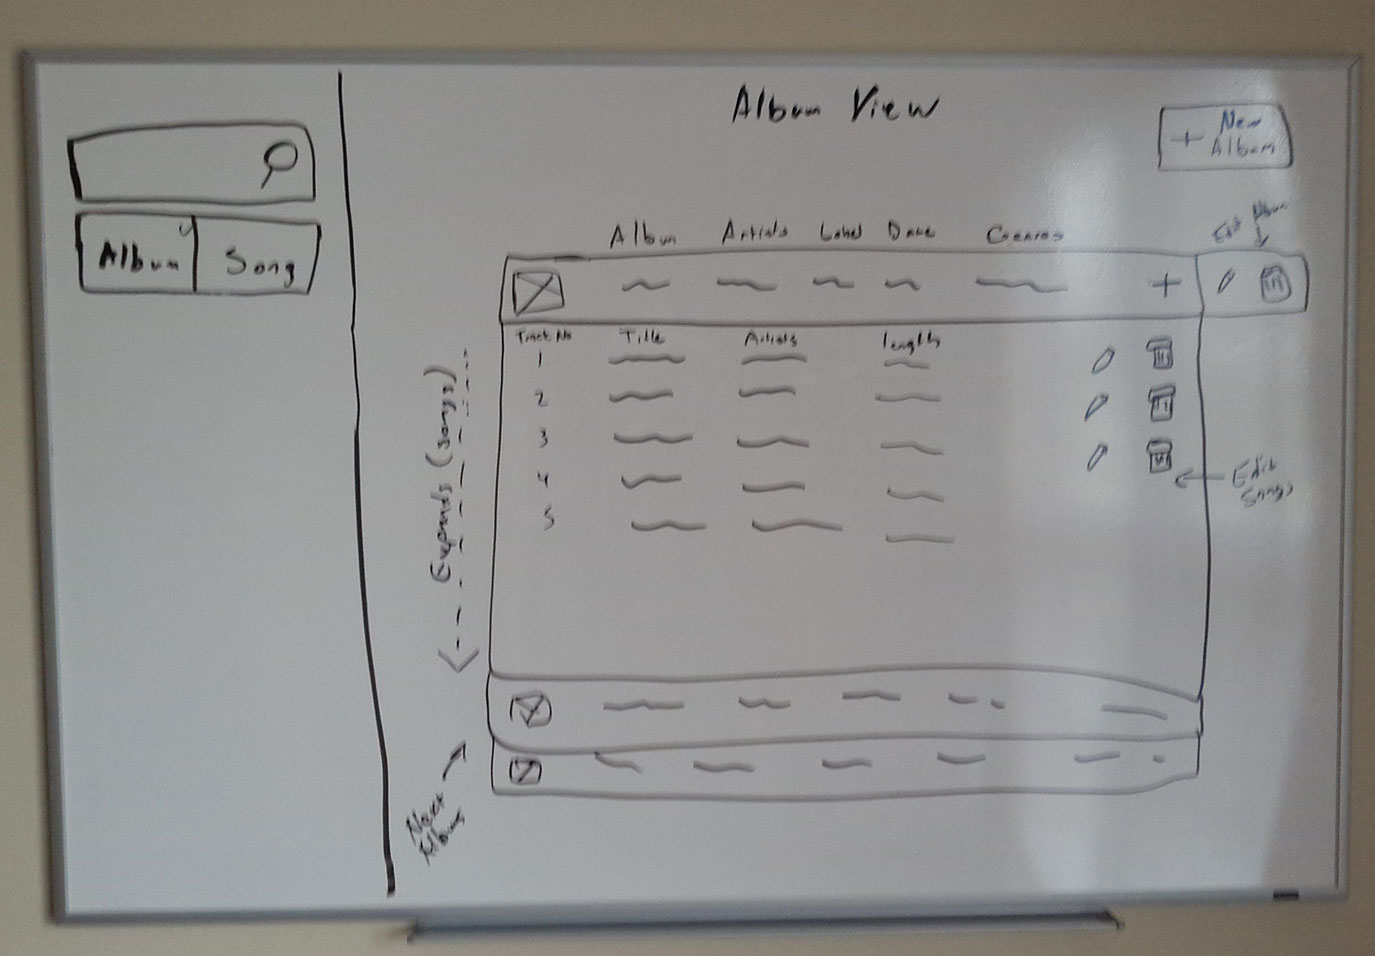 Album View
+ New
Album
Album
Song
Album Artists Label Date Genres
Edit Album
+
Track No Title Artists length
1
2
3
4
5
Expands (songs)
Edit
Songs
Next
Album